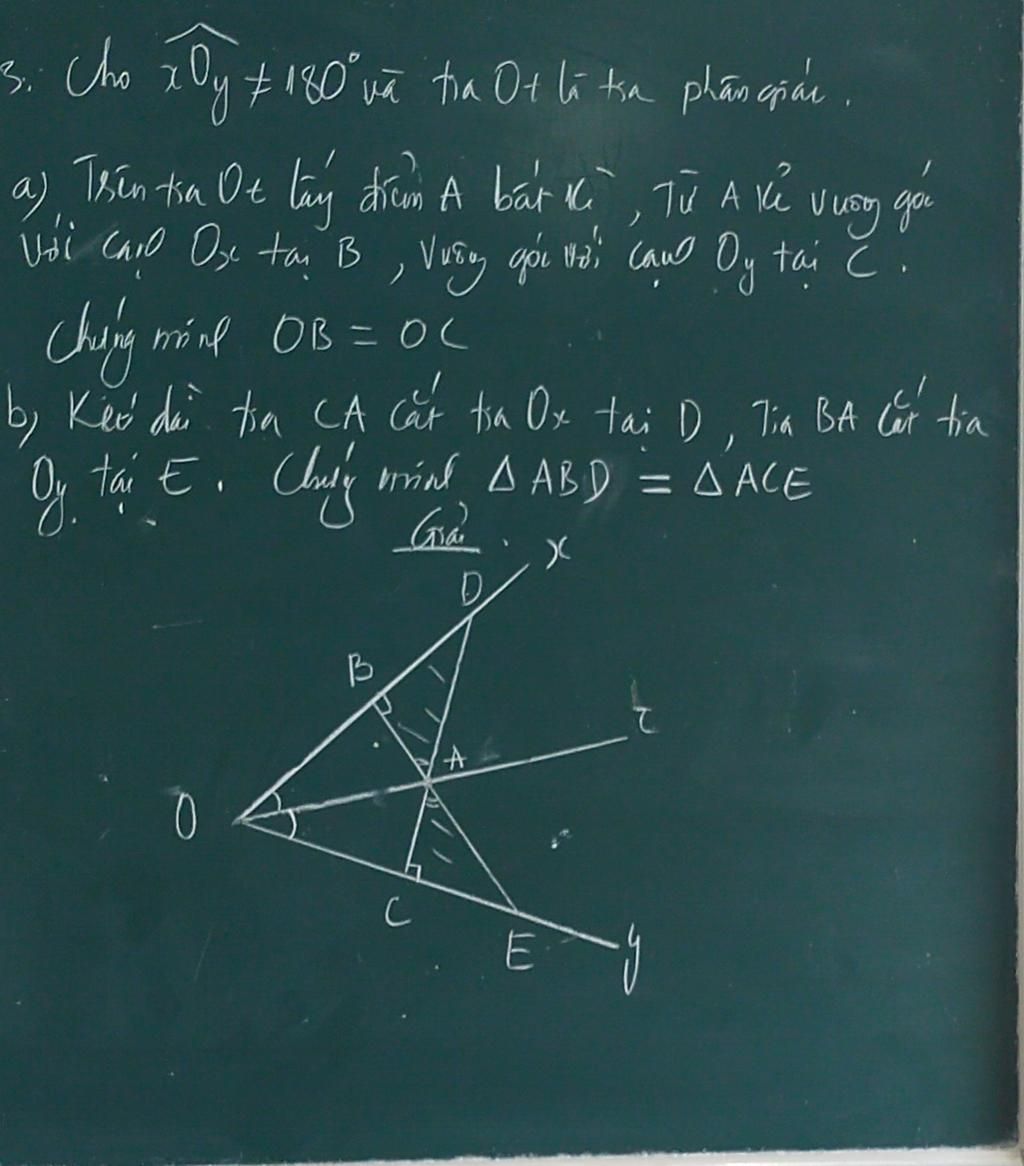 3. Cho xOy ≠ 180° và tia Ot là tia phân giác.
a) Trên tia Ot lấy điểm A bất kì, Từ A kẻ vuông góc
với cạnh Ox tại B, vuông góc với cạnh Oy tại C.
Chứng minh OB = OC
b) Kéo dài tia CA cắt tia Ox tại D, Tia BA cắt tia
Oy tại E. Chứng minh Δ ABD = Δ ACE
Giải
x
D
B
t
A
O
C
E
y